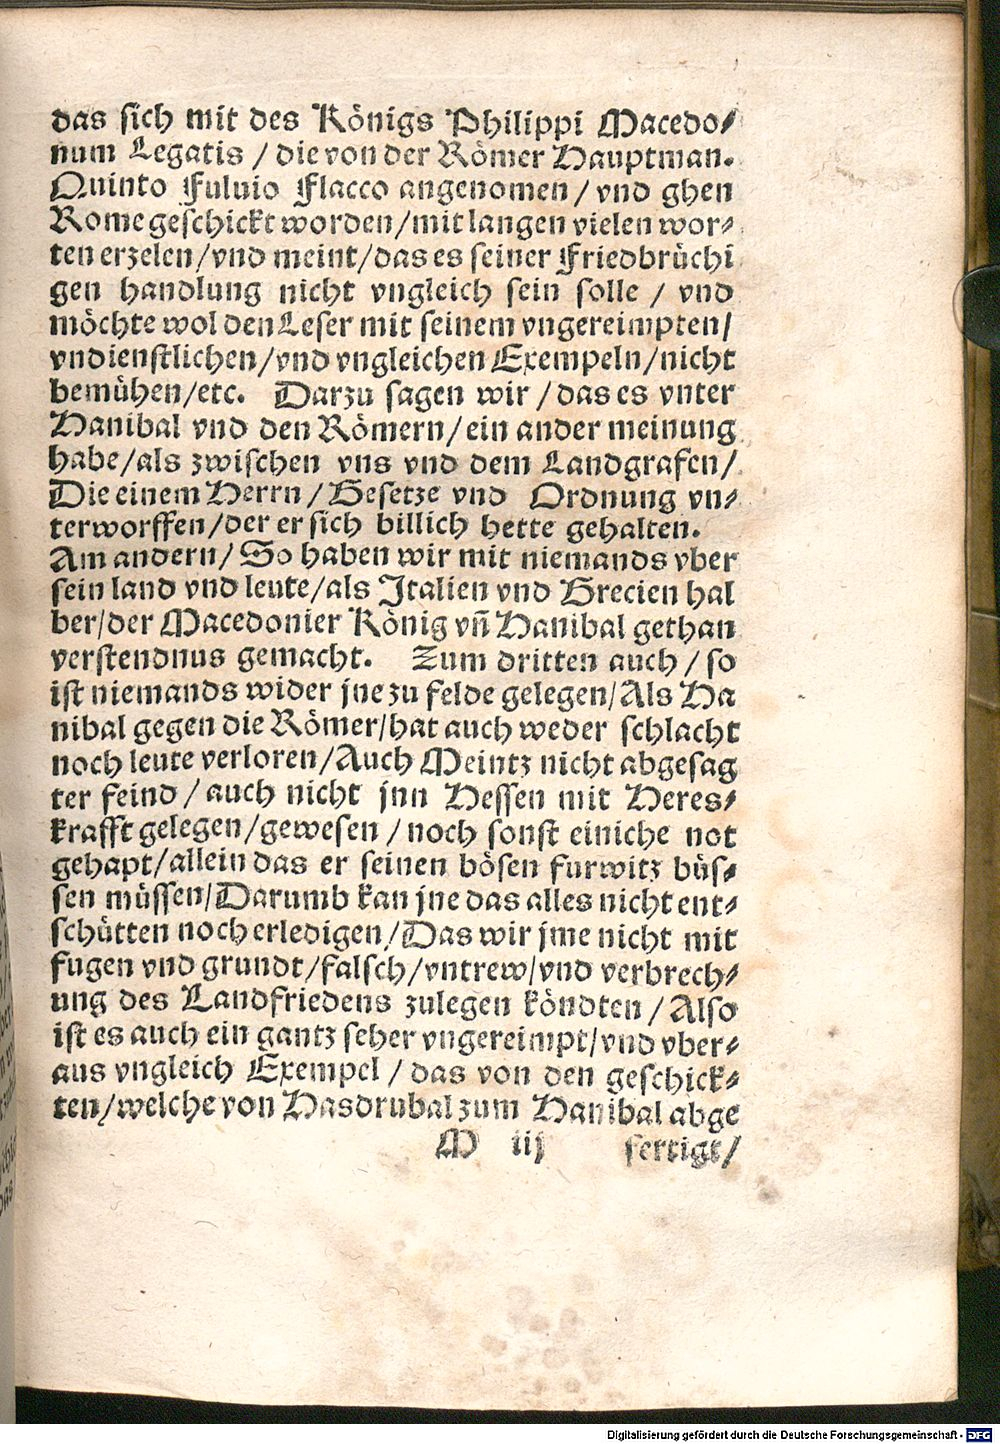 das sich mit des Königs Philippi Macedo⸗
num Legatis / die von der Römer Hauptman.
Quinto Fuluio Flacco angenomen / vnd ghen
Rome geschickt worden/mit langen vielen wor⸗
ten erzelen/vnd meint/das es seiner Friedbrüchi
gen handlung nicht vngleich sein solle / vnd
möchte wol den Leser mit seinem vngereimpten/
vndienstlichen/vnd vngleichen Exempeln/nicht
bemühen/etc. Darzu sagen wir / das es vnter
Hanibal vnd den Römern/ein ander meinung
habe/als zwischen vns vnd dem Landgrafen/
Die einem Herrn / Gesetze vnd Ordnung vn⸗
terworffen/der er sich billich hette gehalten.
Am andern/ So haben wir mit niemands vber
sein land vnd leute/als Italien vnd Grecien hal
ber/der Macedonier König vñ Hanibal gethan
verstendnus gemacht. Zum dritten auch / so
ist niemands wider jne zu felde gelegen/Als Ha
nibal gegen die Römer/hat auch weder schlacht
noch leute verloren/Auch Meintz nicht abgesag
ter feind / auch nicht jnn Hessen mit Heres⸗
krafft gelegen/gewesen / noch sonst einiche not
gehapt/allein das er seinen bösen furwitz büs⸗
sen müssen/Darumb kan jne das alles nicht ent⸗
schütten noch erledigen/Das wir jme nicht mit
fugen vnd grundt/falsch/vntrew/vnd verbrech⸗
ung des Landfriedens zulegen köndten / Also
ist es auch ein gantz seher vngereimpt/vnd vber⸗
aus vngleich Exempel / das von den geschick⸗
ten/welche von Hasdrubal zum Hanibal abge
M iij fertigt/
Digitalisierung gefördert durch die Deutsche Forschungsgemeinschaft - DFG